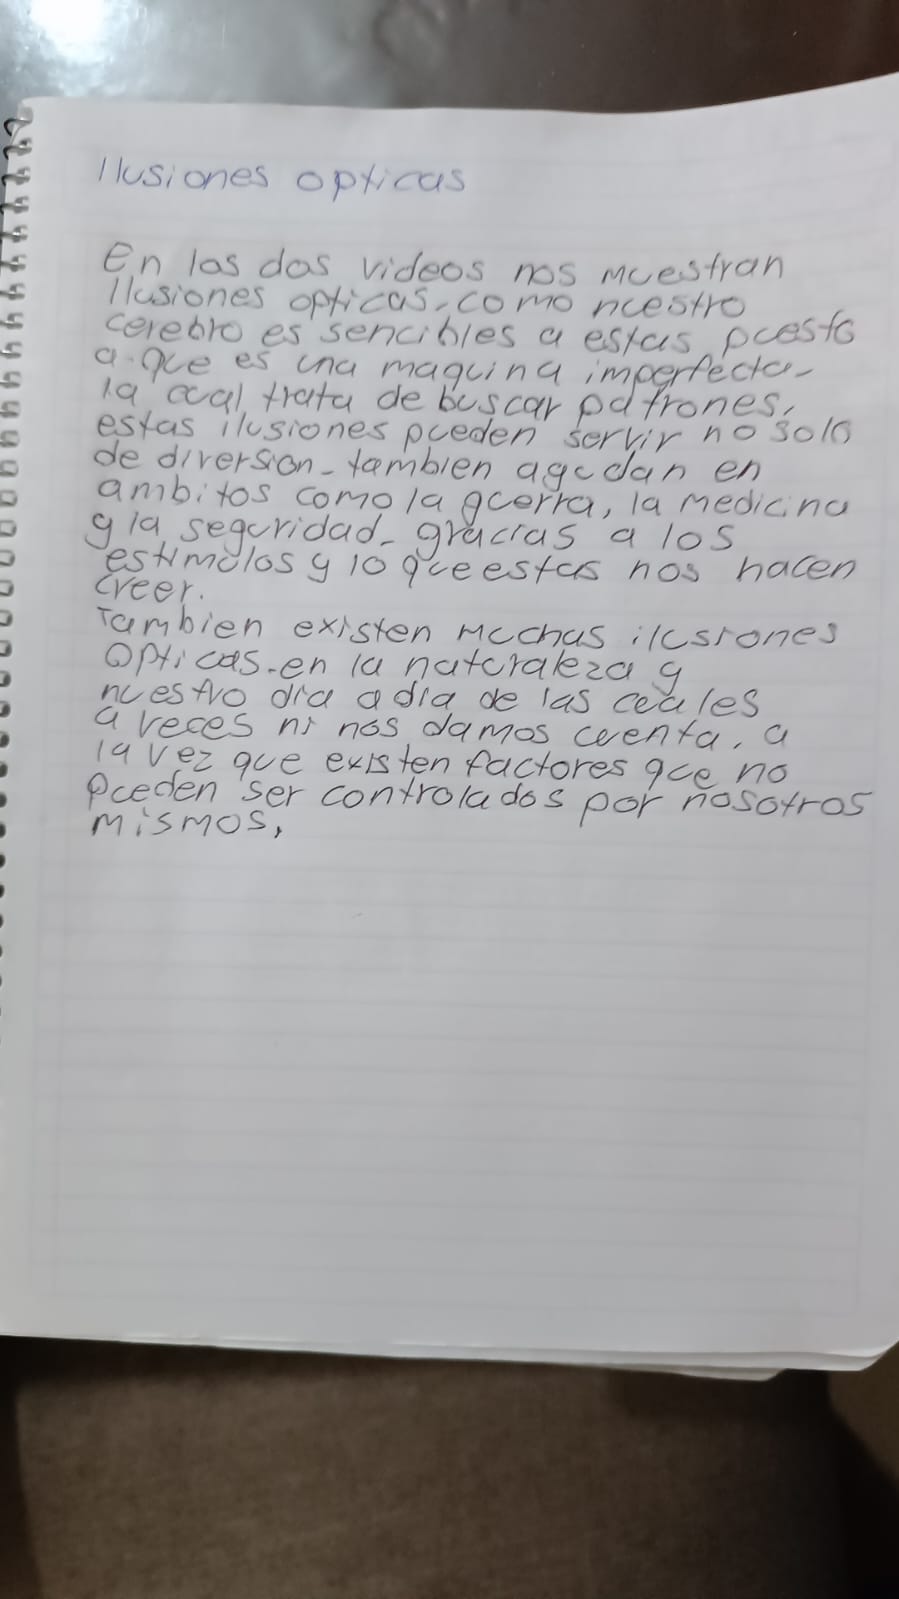 Ilusiones opticas
En los dos videos nos muestran
Ilusiones opticas, como nuestro
cerebro es sencibles a estas puesto
a que es una maquina imperfecta,
la cual trata de buscar patrones,
estas ilusiones pueden servir no solo
de diversion, tambien agudan en
ambitos como la guerra, la medicina
y la seguridad, gracias a los
estimulos y lo que estas nos hacen
creer.
Tambien existen muchas ilusiones
Opticas, en la naturaleza y
nuestro dia a dia de las cuales
a veces ni nos damos cuenta, a
la vez que existen factores que no
pueden ser controlados por nosotros
mismos,